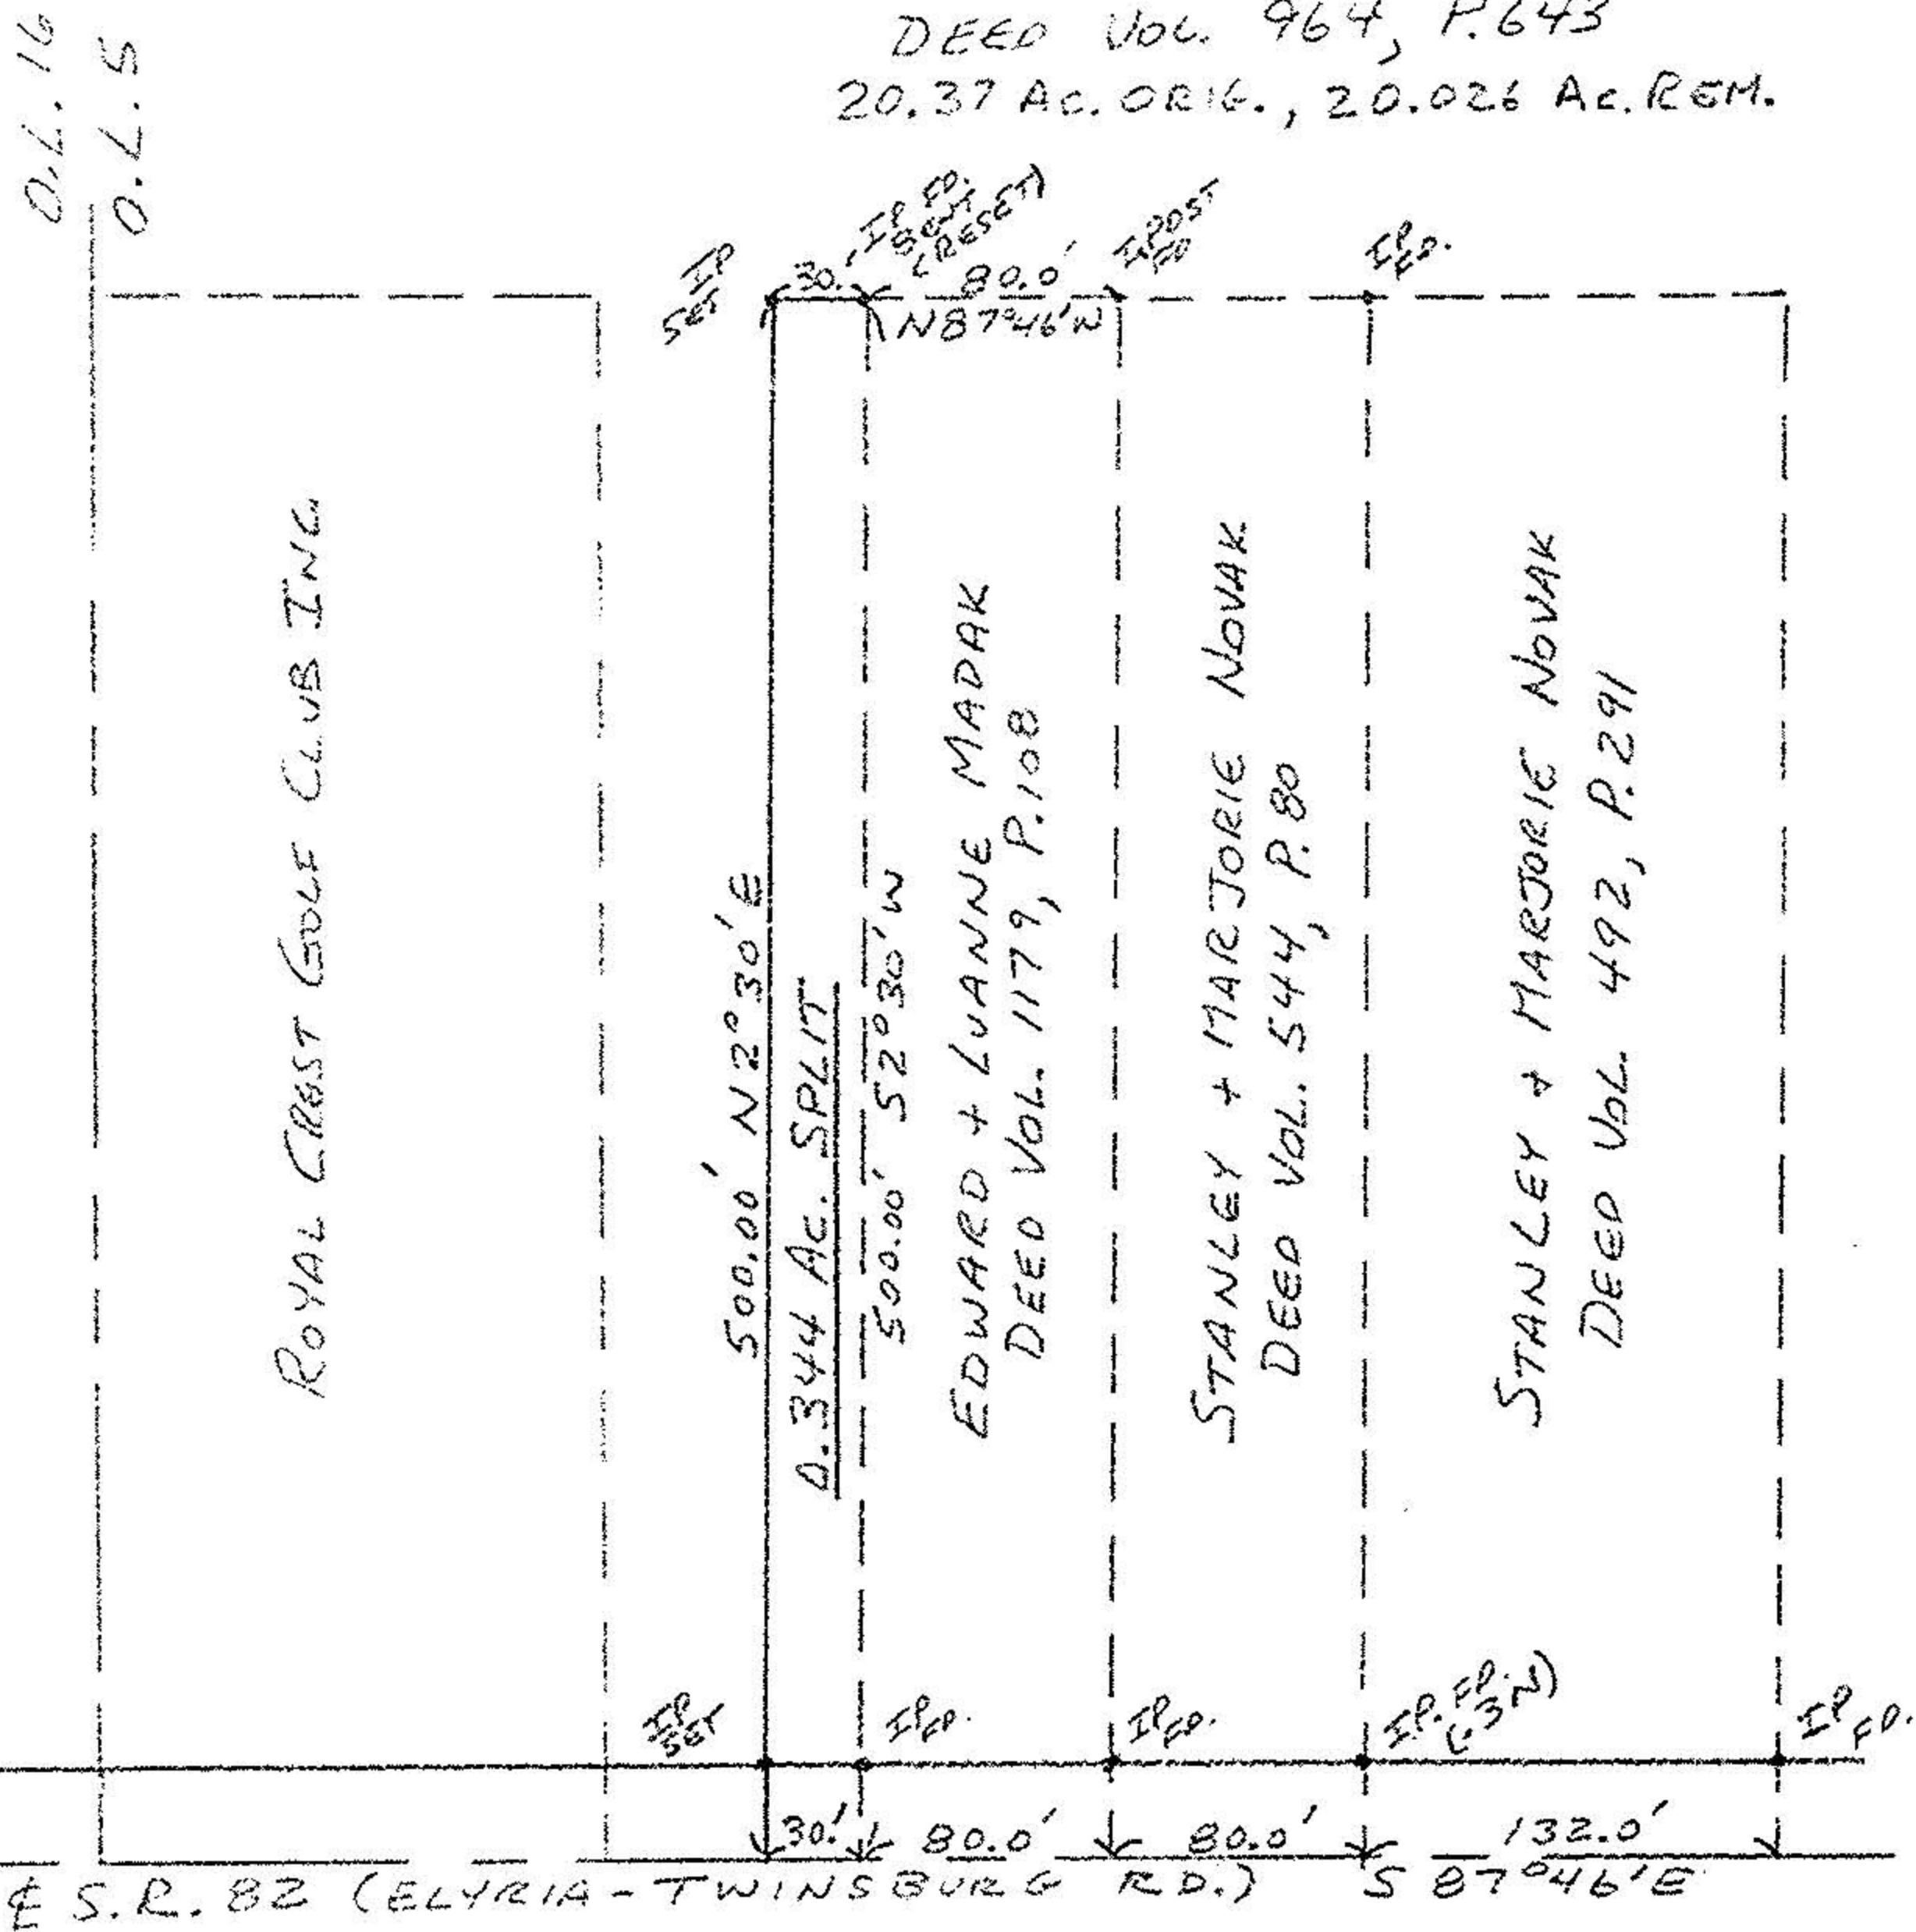 O.L. 16
O.L. 5
DEED VOL. 964, P. 643
20.37 AC. ORIG., 20.026 AC. REM.
IP
SET
30.'
IP FD.
BENT
(RESET)
80.0'
N87°46'W
I. POST
FD
IP
FD.
ROYAL CREST GOLF CLUB INC
500.00' N2°30'E
0.344 AC. SPLIT
500.00' S2°30'W
EDWARD + LUANNE MADAK
DEED VOL. 1179, P.108
STANLEY + MARJORIE NOVAK
DEED VOL. 544, P. 80
STANLEY + MARJORIE NOVAK
DEED VOL. 492, P. 291
IP
SET
IP FD.
IP FD.
IP. FD.
(.3 N)
IP FD.
30.'
80.0'
80.0'
132.0'
℄ S.R. 82 (ELYRIA-TWINSBURG RD.) S 87°46'E